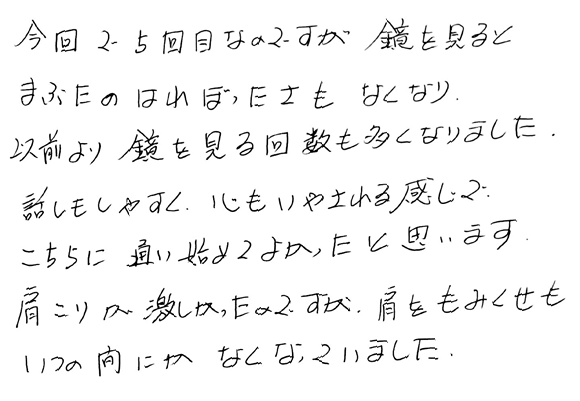 今回で5回目なのですが 鏡を見ると
まぶたのはれぼったさも なくなり、
以前より 鏡を見る回数も多くなりました。
話しもしやすく、心もいやされる感じで
こちらに 通い始めてよかったと思います。
肩こりが激しかったのですが、肩をもみくせも
いつの間にか なくなっていました。